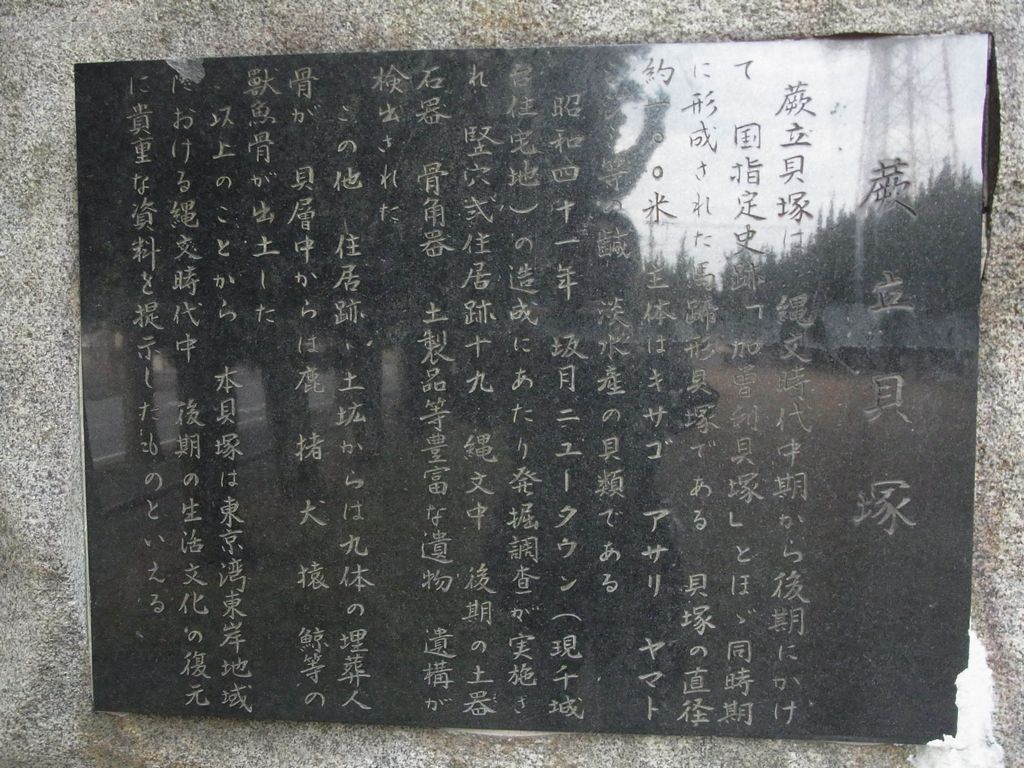 蕨立貝塚
蕨立貝塚は 縄文時代中期から後期にかけ
て 国指定史跡「加曽利貝塚」とほゞ同時期
に形成された馬蹄形貝塚である 貝塚の直径
約一〇〇米 主体はキサゴ アサリ ヤマト
等の鹹 淡水産の貝類である
昭和四十一年 坂月ニュータウン(現千城
台住宅地)の造成にあたり発掘調査が実施さ
れ 竪穴式住居跡十九 縄文中 後期の土器
石器 骨角器 土製品等豊富な遺物 遺構が
検出された
この他 住居跡 土坑からは九体の埋葬人
骨が 貝層中からは鹿 猪 犬 猿 鯨等の
獣魚骨が出土した
以上のことから 本貝塚は東京湾東岸地域
における縄文時代中 後期の生活文化の復元
に貴重な資料を提示したものといえる